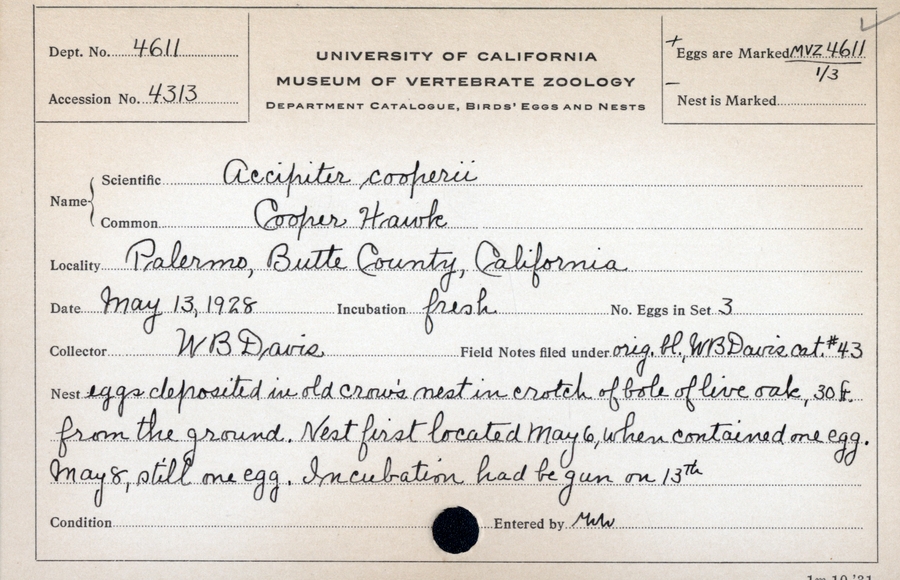 Dept. No. 4611
Accession No. 4313
UNIVERSITY OF CALIFORNIA
MUSEUM OF VERTEBRATE ZOOLOGY
DEPARTMENT CATALOGUE, BIRDS' EGGS AND NESTS
+ Eggs are Marked MVZ 4611
1/3
– Nest is Marked
Name
Scientific Accipiter cooperii
Common Cooper Hawk
Locality Palermo, Butte County, California
Date May 13, 1928 Incubation fresh No. Eggs in Set 3
Collector W B Davis Field Notes filed under orig. bl., WB Davis cat. #43
Nest eggs deposited in old crow's nest in crotch of bole of live oak, 30 ft.
from the ground. Nest first located May 6, when contained one egg.
May 8, still one egg. Incubation had begun on 13th
Condition Entered by
1m 10 '31